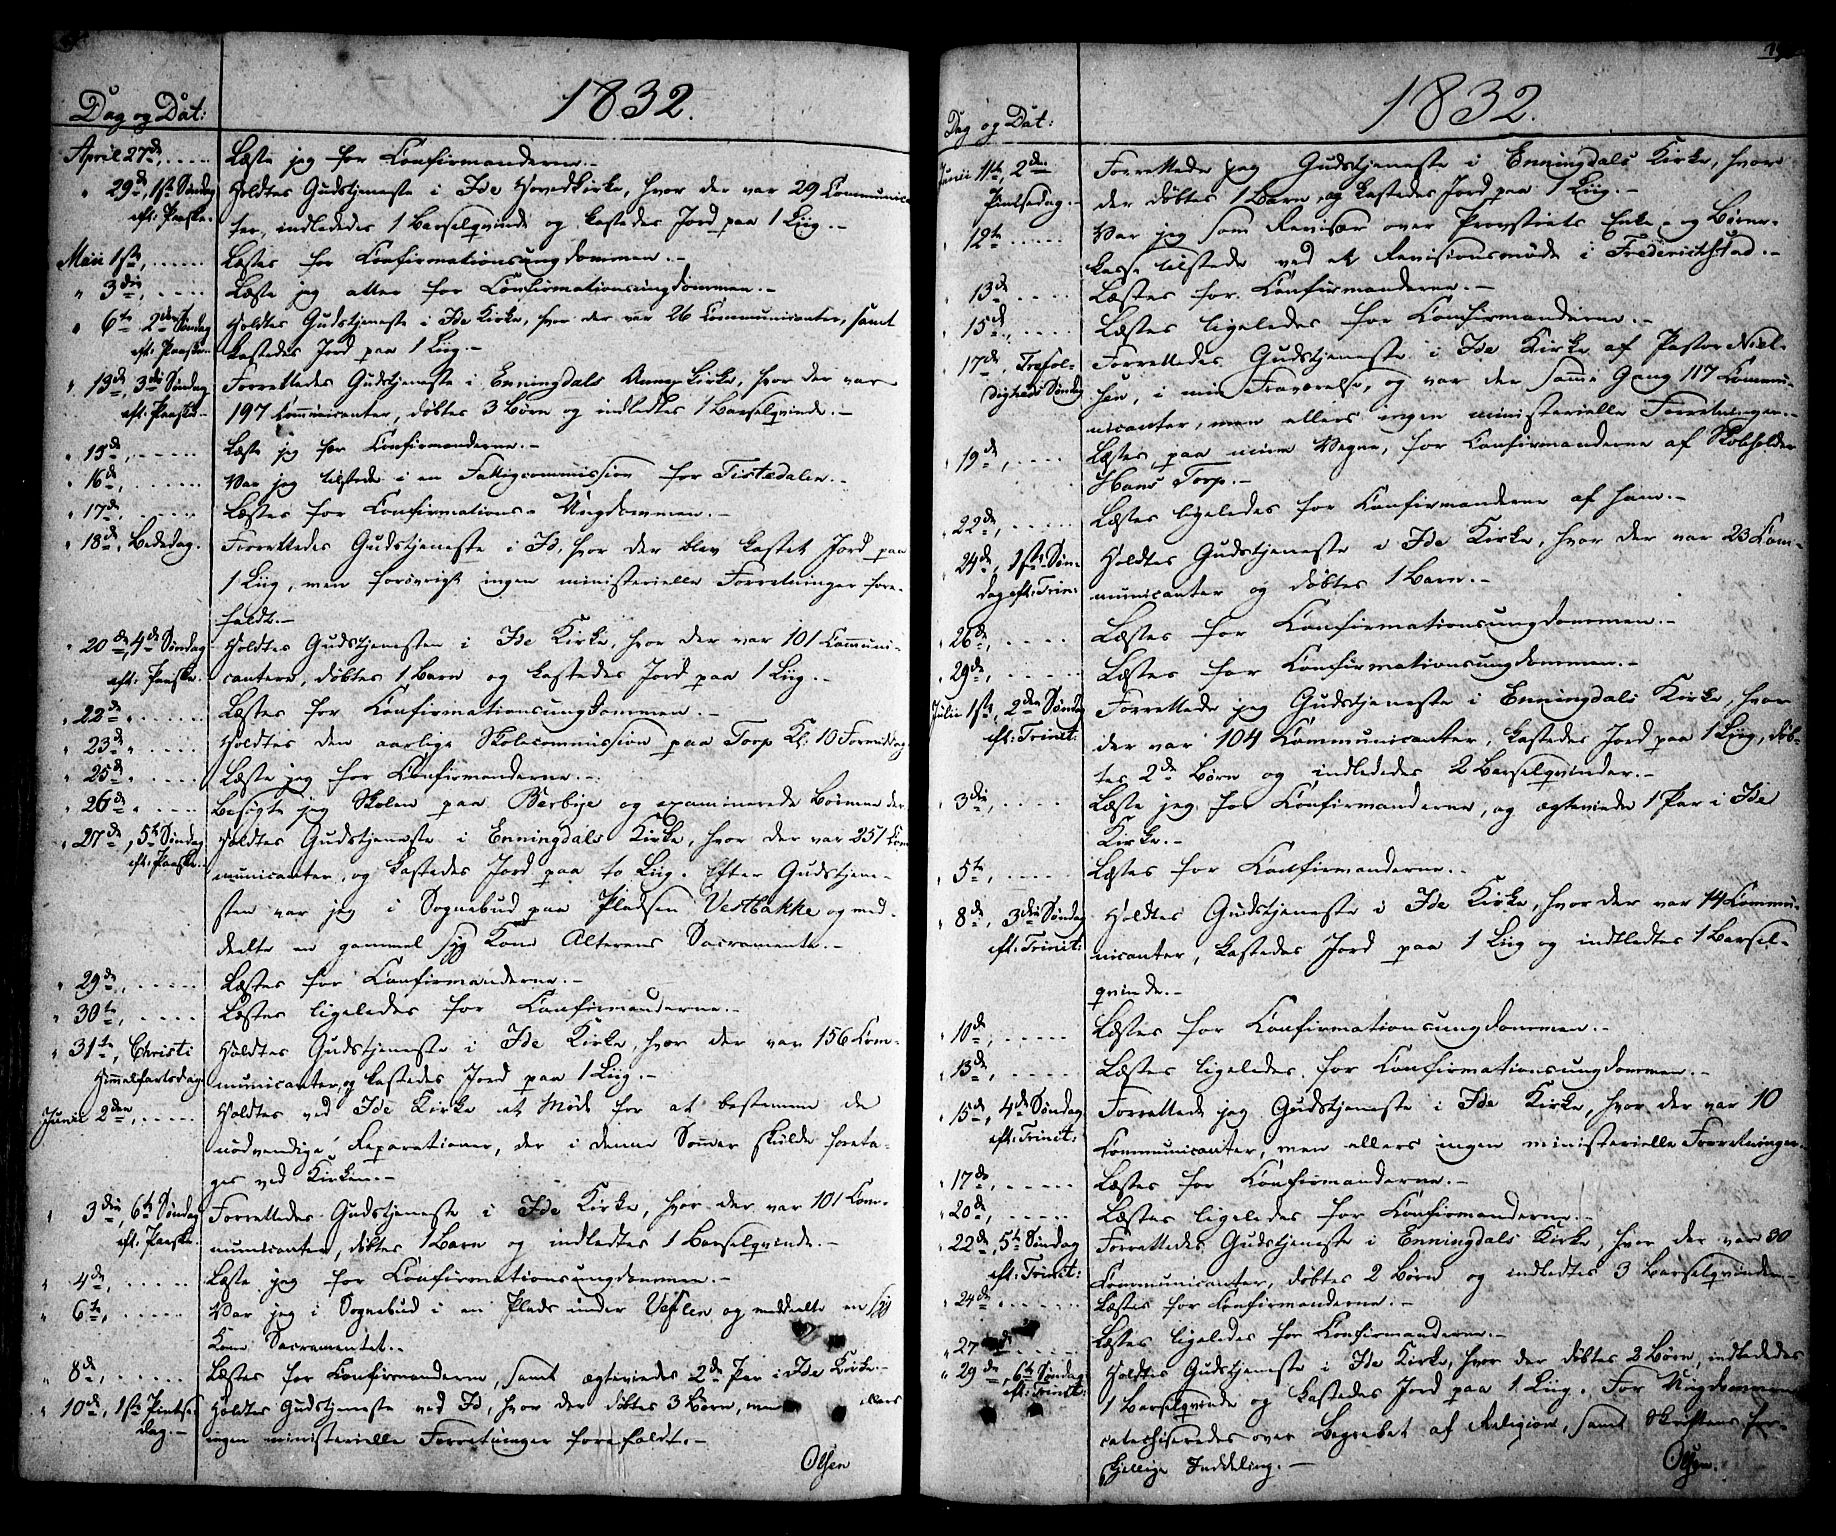 1832.
Dag og Dat:
April 27de, Læste jeg for Confirmanderne.-
" 29de, 1ste Søndag Holdtes Gudstjeneste i Ide Hovedkirke, hvor der var 29 Communican-
eft: Paaske.- ter, indlededes 1 Barselqvinde og kastedes Jord paa 1 Liig.-
Maii 1ste, Læstes for Confirmationsungdommen.-
" 3die, Læste jeg atter for Confirmationsungdommen.-
" 6te 2den Søndag Holdtes Gudstjeneste i Ide Kirke, hvor der var 26 Communicanter, samt
eft: Paaske.- kastedes Jord paa 1 Liig.-
" 13de, 3die Søndag Forrettedes Gudstjeneste i Enningdals Annex Kirke, hvor der var
eft: Paaske.- 197 Communicanter, døbtes 3 Børn og indledtes 1 Barselqvinde.-
" 15de, Læste jeg for Confirmanderne.-
" 16de, Var jeg tilstede i en Fattigcommission for Tistedalen.-
" 17de, Læstes for Confirmations-Ungdommen.-
" 18de, Bededag. Forrettedes Gudstjeneste i Id, hvor der blev kastet Jord paa
1 Liig, men forøvrigt ingen ministerielle Forretninger fore-
faldt.-
" 20de, 4de Søndag Holdtes Gudstjenesten i Ide Kirke, hvor der var 101 Communi-
eft: Paaske. cantere, døbtes 1 Barn og kastedes Jord paa 1 Liig.-
" 22de " Læstes for Confirmationsungdommen.-
" 23de " Holdtes den aarlige Skolecommission paa Torp Kl: 10 Formiddag
" 25de " Læste jeg for Confirmanderne.-
" 26de " Besøgte jeg Skolen paa Berbye og examinerede Børnene der.
" 27de, 5te Søndag Holdtes Gudstjeneste i Enningdals Kirke, hvor der var 251 Com
eft: Paaske.- municanter, og kastedes Jord paa to Liig. Efter Gudstjene-
sten var jeg i Sognebud paa Pladsen Vestbakke og med-
deelte en gammel syg Kone Alterens Sacramente.-
" 29de, Læstes for Confirmanderne.-
" 30te, Læstes ligeledes for Confirmanderne.-
" 31te, Christi Holdtes Gudstjeneste i Ide Kirke, hvor der var 156 Com-
Himmelfartsdag municanter, og kastedes Jord paa 1 Liig.-
Junii 2den, Holdtes ved Ide Kirke et Møde for at bestemme de
nødvendige Reparationer, der i denne Sommer skulde foreta-
ges ved Kirken.-
" 3die, 6te Søndag Forrettedes Gudstjeneste i Ide Kirke, hvor der var 101 Com-
eft: Paaske. municanter, døbtes 1 Barn og indledtes 1 Barselqvinde.-
" 4de, Læste jeg for Confirmationsungdommen.-
" 6te, Var jeg i Sognebud i en Plads under Vesten og meddeelte en syg
Kone Sacramentet.-
" 8de, Læstes for Confirmanderne, samt ægteviedes 2de Par i Ide Kirke.-
" 10de, 1ste Pintse- Holdtes Gudstjeneste ved Id, hvor der døbtes 3 Børn, men ellers
dag.- ingen ministerielle Forretninger forefaldt.-
Olsen
1832.
Dag og Dat:
Junii 11te, 2den Forrettede jeg Gudstjeneste i Enningdals Kirke, hvor
Pintsedag.- der døbtes 1 Barn og kastedes Jord paa 1 Liig.-
" 12te Var jeg som Revisor over Provstiets Enke- og Børne-
kasse tilstede ved et Revisionsmøde i Frederichstad.-
" 13de Læstes for Confirmanderne.-
" 15de, Læstes ligeledes for Confirmanderne.-
" 17de, Trefol- Forrettedes Gudstjeneste i Ide Kirke af Pastor Niel-
digheds Søndag sen, i min Fraværelse, og var der samme Gang 117 Commu-
nicanter, men ellers ingen ministerielle Forretninger.-
" 19de, Læstes paa mine Vegne, for Confirmanderne af Skoleholder
Hans Torp.-
" 22de, Læstes ligeledes for Confirmanderne af ham.-
" 24de, 1ste Søn- Holdtes Gudstjeneste i Ide Kirke, hvor der var 23 Com-
dag eft: Trin: municanter og døbtes 1 Barn.-
" 26de, Læstes for Confirmationsungdommen.-
" 29de, Læstes for Confirmationsungdommen.-
Julii 1ste, 2den Søndag Forrettede jeg Gudstjeneste i Enningdals Kirke, hvor
eft: Trinit: der var 104 Communicanter, kastedes Jord paa 1 Liig, døb-
tes 2de Børn og indlededes 2 Barselqvinder.-
" 3die, Læste jeg for Confirmanderne, og ægteviede 1 Par i Ide
Kirke.-
" 5te, Læstes for Confirmanderne.-
" 8de, 3die Søndag Holdtes Gudstjeneste i Ide Kirke, hvor der var 14 Commu-
eft: Trinit: nicanter, kastedes Jord paa 1 Liig og indledtes 1 Barsel-
qvinde.-
" 10de, Læstes for Confirmationsungdommen.-
" 13de, Læstes ligeledes for Confirmationsungdommen.-
" 15de, 4de Søndag Forrettede jeg Gudstjeneste i Ide Kirke, hvor der var 10
eft: Trinit: Communicanter, men ellers ingen ministerielle Forretninger.
" 17de, Læstes for Confirmanderne.-
" 20de, Læstes ligeledes for Confirmanderne.-
" 22de, 5te Søndag Forrettedes Gudstjeneste i Enningdals Kirke, hvor der var 80
eft: Trinit: Communicanter, døbtes 2 Børn og indledtes 3 Barselqvinder.-
" 24de, Læstes for Confirmanderne.-
" 27de Læstes ligeledes for Confirmanderne.-
" 29de, 6te Søndag Holdtes Gudstjeneste i Ide Kirke, hvor der døbtes 2 Børn, indlededes
eft: Trinit: 1 Barselqvinde og kastedes Jord paa 1 Liig. For Ungdommen
catechiseredes over Begrebet af Religion, samt Skriftens for-
skjellige Inddeling.-
Olsen.